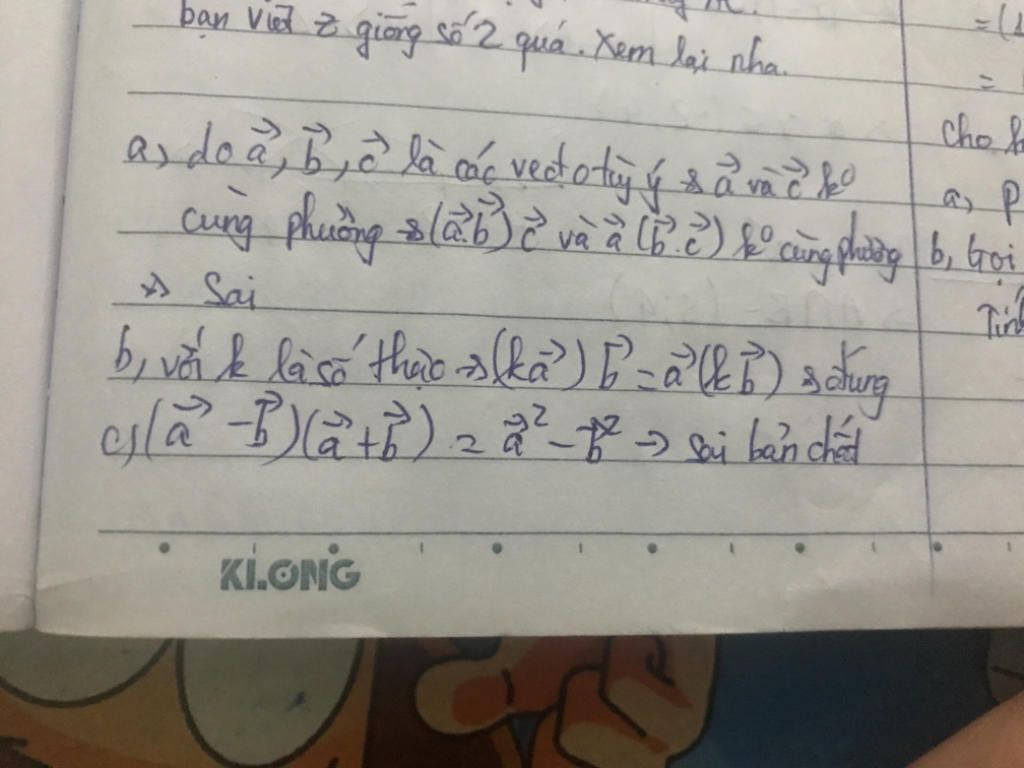 bạn viết z giống số 2 quá. Xem lại nha.
a, do a⃗, b⃗, c⃗ là các vectơ tùy ý → a⃗ và c⃗ k⁰
cùng phương → (a⃗.b⃗) c⃗ và a⃗ (b⃗.c⃗) k⁰ cùng phương
→ Sai
b, với k là số thực → (ka⃗) b⃗ = a⃗ (kb⃗) → đúng
c, (a⃗ - b⃗)(a⃗ + b⃗) = a⃗² - b⃗² → sai bản chất
KLONG
= (1
=
cho
a, P
b, Gọi
Tính